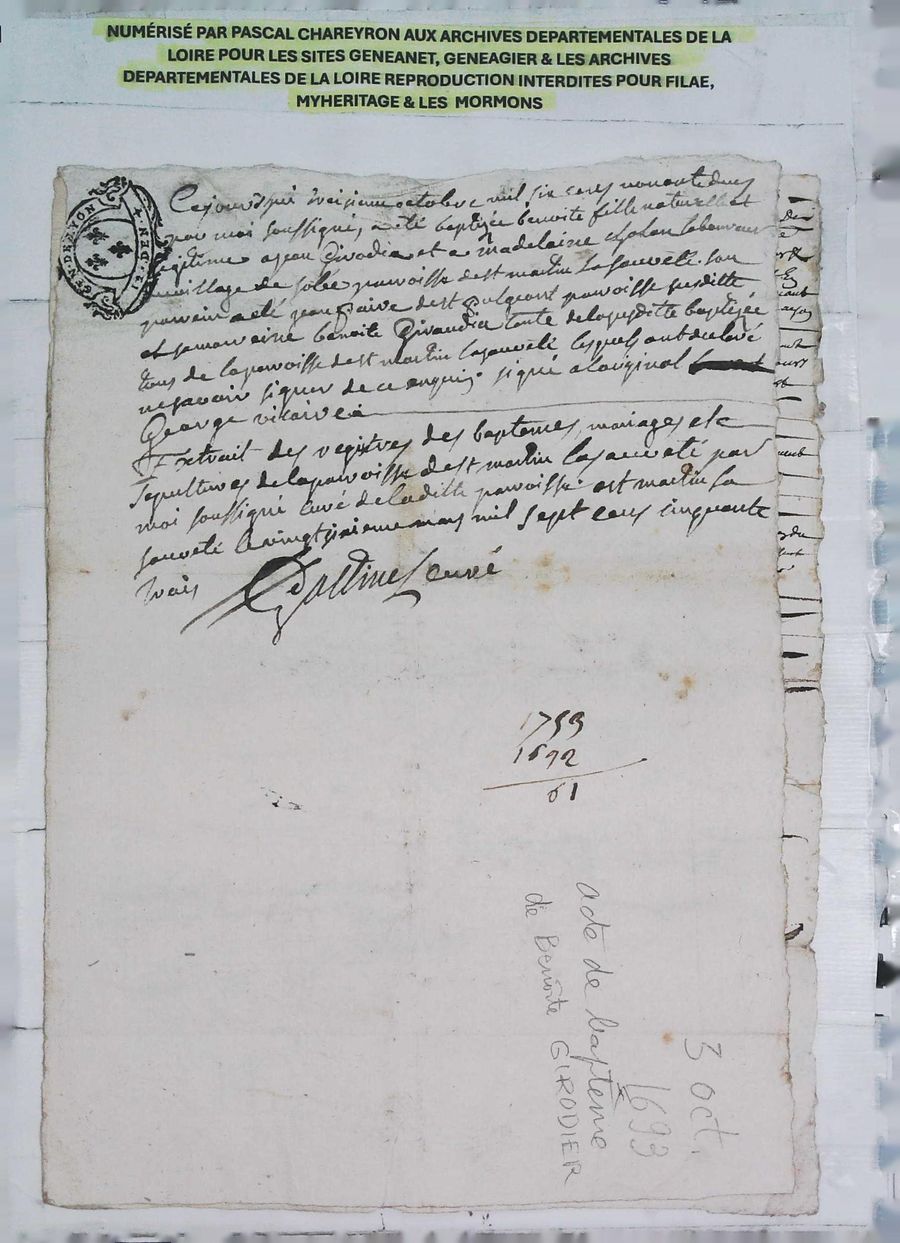 NUMÉRISÉ PAR PASCAL CHAREYRON AUX ARCHIVES DEPARTEMENTALES DE LA
LOIRE POUR LES SITES GENEANET, GENEAGIER & LES ARCHIVES
DEPARTEMENTALES DE LA LOIRE REPRODUCTION INTERDITES POUR FILAE,
MYHERITAGE & LES MORMONS
GEN. DE LYON
Ce jourd'hui troisieme octobre mil six cens nonante deux
par moi soussigné, a eté baptizée benoite fille naturelle et
legitime a jean Girodia et a madelaine
du village de solée paroisse de st martin la sauveté son
parrain a eté jean faive de st Pulgeant paroisse susditte
et sa marraine benoite Giraudia tante de la susditte baptizée
tous de la paroisse de st martin la sauveté lesquels ont declaré
ne sçavoir signer de ce enquis. signé a l'original
George vicaire
Extrait des registres des baptemes, mariages et
sepultures de la paroisse de st martin la sauveté par
moi soussigné curé de la ditte paroisse. a st martin la
sauveté le vingt sixieme mars mil sept cens cinquante
trois curé
1753
1692
61
acte de baptême
de Benoîte GIRODIER
3 oct.
1693